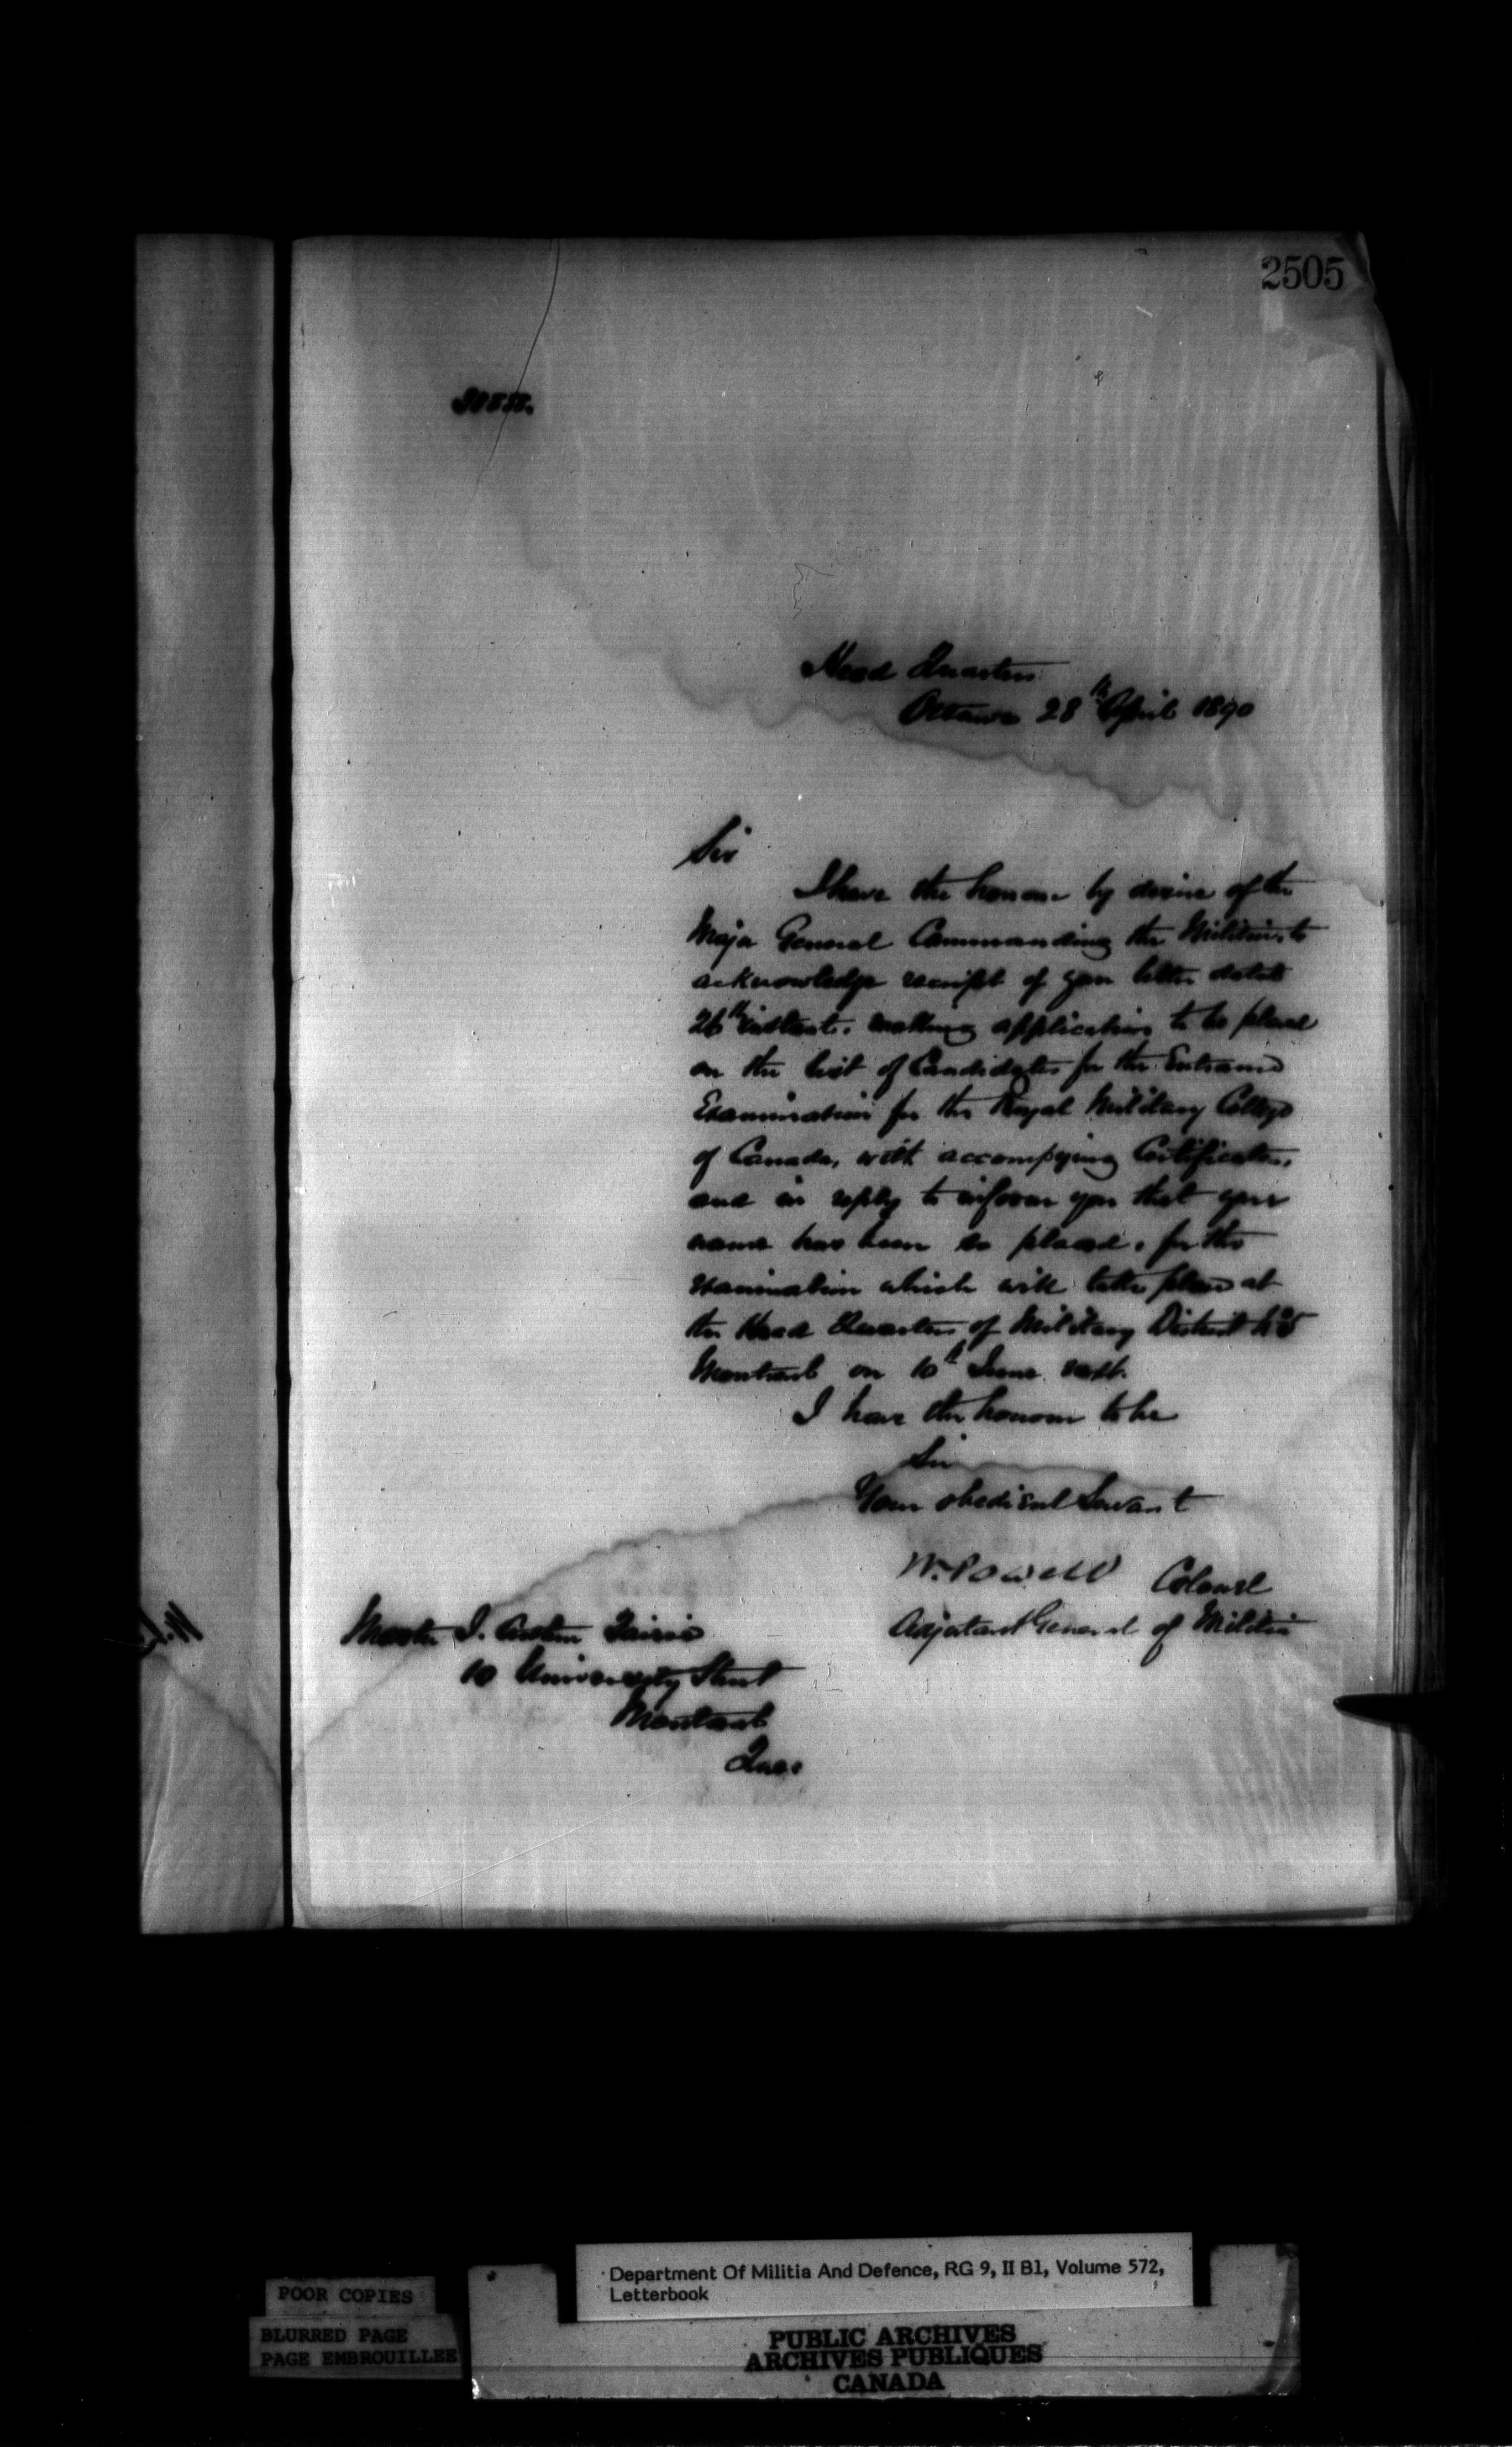 2505
Head Quarters
Ottawa 28th April 1890
Sir
I have the honour by desire of the
Major General Commanding the Militia, to
acknowledge receipt of your letter dated
26th instant. making application to be placed
on the list of Candidates for the Entrance
Examination for the Royal Military College
of Canada, with accompying Certificates,
and in reply to inform you that your
name has been so placed, for the
examination which will take place at
the Head Quarters of Military District No 5
Montreal on 10th June next.
I have the honour to be
Sir
Your obedient Servant
W. Powell Colonel
Adjutant General of Militia
Master J. Austin
10 University Street
Montreal
Que.
Department Of Militia And Defence, RG 9, II B1, Volume 572,
Letterbook
POOR COPIES
BLURRED PAGE
PAGE EMBROUILLEE
PUBLIC ARCHIVES
ARCHIVES PUBLIQUES
CANADA